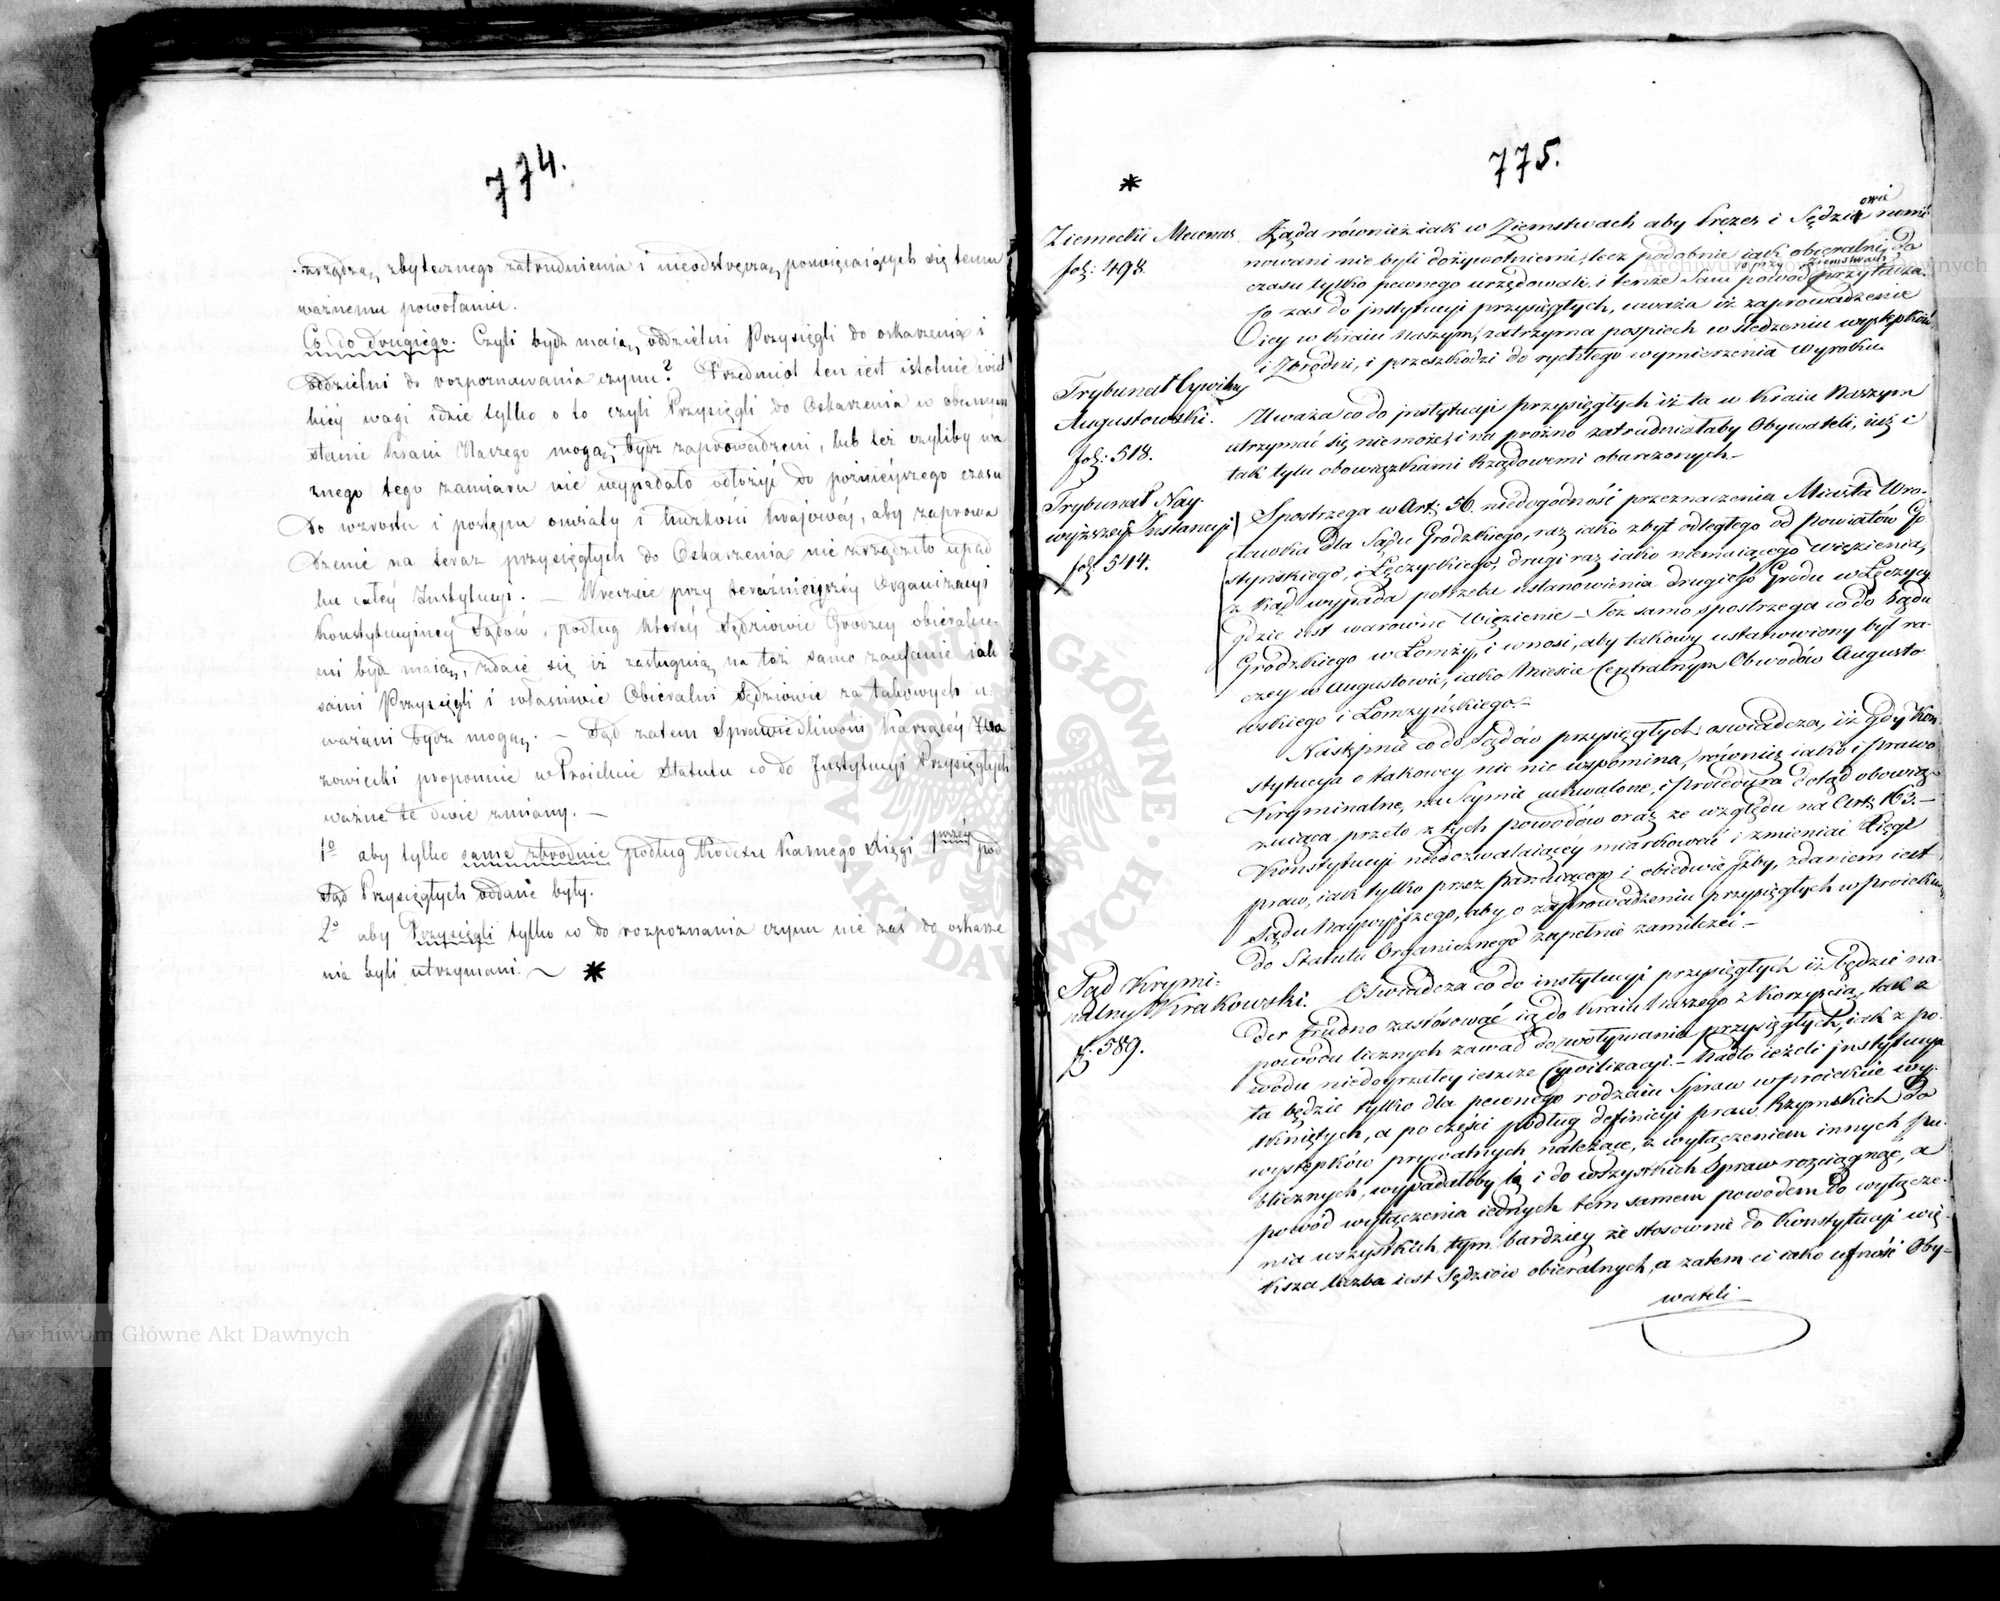 774.
zrządzą, zbytecznego zatrudnienia i nieodstręczą, poswięcaiących się temu
ważnemu powołaniu.
Co do drugiego. Czyli bydź maią, oddzielni Przysięgli do oskarzenia i
oddzielni do rozpoznawania czynu? Przedmiot ten iest istotnie wiel
kiey wagi idzie tylko o to czyli Przysięgli do Oskarzenia w obecnym
stanie Kraiu Naszego mogą, bydź zaprowadzeni, lub też czyliby wa
żnego tego zamiaru nie wypadało odłożyć do poźnieyszego czasu
do wzrostu i postępu oswiaty i ludzkości kraiowey, aby zaprowa
dzenie na teraz przysięgłych do Oskarzenia nie zrządziło upad
ku całey Instytucyi. — Wreszcie przy teraznieyszey Organizacyi
Konstytucyiney Sądów, podług ktorey Sędziowie Grodzcy obieralne-
mi bydź maią, zdaie się iż zasługuią na toż samo zaufanie iak
sami Przysięgli i właściwie Obieralni Sędziowie za takowych u
ważani bydź mogą. — Sąd zatem Sprawiedliwości Karzącey Ma
zowiecki proponuie w Proiekcie Statutu co do Instytucyi Przysięgłych
ważne te dwie zmiany. —
1º aby tylko same zbrodnie podług Kodexu Karnego Xięgi pod
Sąd Przysięgłych oddane były.
2º aby Przysięgli tylko do rozpoznania czynu nie zaś do oskarze
nia byli utrzymani. *
775.
*
Ziemecki Mecenas
fol: 498.
Żąda również iak w Ziemstwach aby Prezes i Sędziowie nomi-
nowani nie byli dożywotniemi, lecz podobnie iak obieralni, do
czasu tylko pewnego urzędowali, i tenże sam powód co przy Ziemstwach przytacza.
Co zaś do instytucyi przysięgłych, uważa iż zaprowadzenie
Oney w Kraiu Naszym, zatrzyma pospiech w śledzeniu występków
i Zbrodni, i przeszkodzi do rychłego wymierzenia Wyroku.
Trybunał Cywilny
Augustowski.
fol: 518.
Uważa co do instytucyi przysięgłych iż ta w Kraiu Naszym
utrzymać się niemoże, i na próżno zatrudniałaby Obywateli, iuż i
tak tylu obowiązkami Rządowemi obarczonych. —
Trybunał Nay-
wyższey Instancyi
fol: 544.
Spostrzega w Art: 56. niedogodność przeznaczenia Miasta Wro-
cławka dla Sądu Grodzkiego, raz iako zbyt odległego od Powiatów Go
styńskiego, i Łęczyckiego, drugi raz iako niemaiącego więzienia,
z kąd wypada potrzeba ustanowienia drugiego Grodu w Łęczycy
gdzie iest warowne Więzienie — Toż samo spostrzega co do Sądu
Grodzkiego w Łomży, i wnosi, aby takowy ustanowiony był ra-
czey w Augustowie, iako Mieście Centralnym Obwodów Augusto
wskiego i Łomżyńskiego. —
Następnie co do Sądów przysięgłych oswiadcza, iż gdy Kon-
stytucya o takowey nic nie wspomina, również iako i prawo
Kryminalne, na Seymie uchwalone, i procedura dotąd obowią-
zuiąca przeto z tych powodów oraz ze względu na Art: 163. —
Konstytucyi niedozwalaiącey miarkować i zmieniać Xięgi
praw, iak tylko przez panuiącego i obiedwie Izby, zdaniem iest
Sądu Naywyższego, aby o zaprowadzeniu przysięgłych w proiekcie
do Statutu Organicznego zupełnie zamilczeć —
Sąd Krymi-
nalny Krakowski.
f: 589.
Oświadcza co do instytucyi przysięgłych iż będzie na-
der trudno zastósować ią do Kraiu Naszego z Korzyścią, tak z
powodu licznych zawad do zwoływania przysięgłych, iak z po-
wodu niedoyrzałey ieszcze Cywilizacyi. — Nadto ieżeli instytucya
ta będzie tylko dla pewnego rodzaiu Spraw w proiekcie wy-
tkniętych, a po części podług definicyi praw Rzymskich do
występków prywatnych należące, z wyłączeniem innych pu-
blicznych, wypadałoby ią i do wszystkich Spraw rozciągnąć, a
powód wyłączenia iednych tem samem powodem do wyłącze-
nia wszystkich, tym bardziey że stosownie do Konstytucyi wię-
ksza liczba iest Sędziów obieralnych, a zatem ci iako ufność Oby-
wateli
Archiwum Główne Akt Dawnych
Archiwum Główne Akt Dawnych
ARCHIWUM GŁÓWNE
AKT DAWNYCH